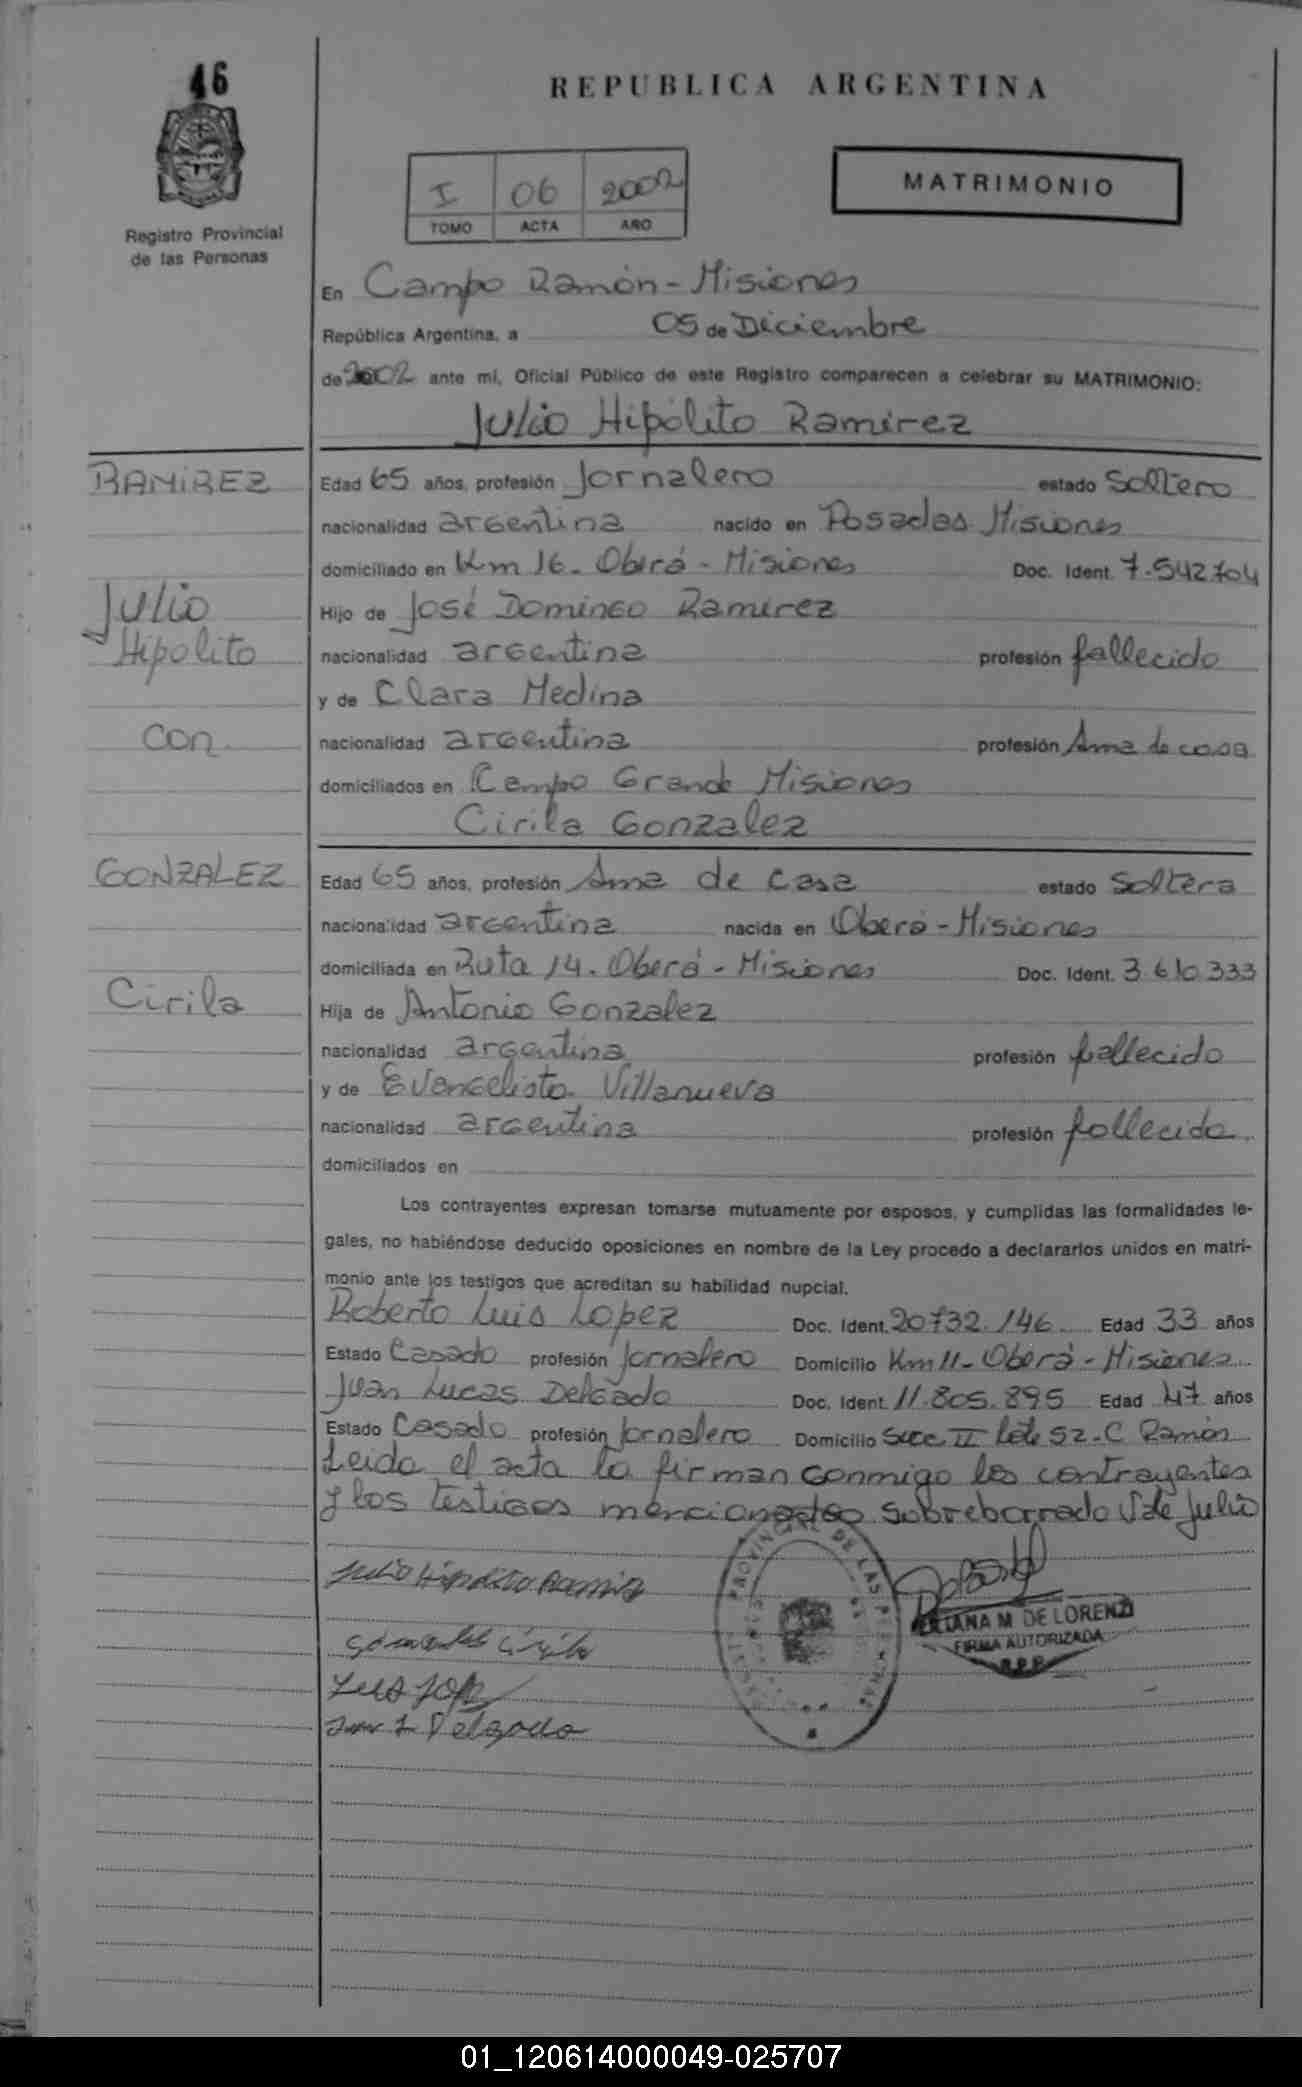 46
REPUBLICA ARGENTINA
I 06 2002
TOMO ACTA AÑO
MATRIMONIO
Registro Provincial
de las Personas
En Campo Ramón - Misiones
República Argentina, a 05 de Diciembre
de 2002 ante mí, Oficial Público de este Registro comparecen a celebrar su MATRIMONIO:
Julio Hipólito Ramirez
RAMIREZ
Julio
Hipolito
con
GONZALEZ
Cirila
Edad 65 años, profesión Jornalero estado Soltero
nacionalidad argentina nacido en Posadas Misiones
domiciliado en Km 16 - Oberá - Misiones Doc. Ident. 7.542.704
Hijo de José Domingo Ramirez
nacionalidad argentina profesión fallecido
y de Clara Medina
nacionalidad argentina profesión Ama de casa
domiciliados en Campo Grande Misiones
Cirila Gonzalez
Edad 65 años, profesión Ama de casa estado Soltera
nacionalidad argentina nacida en Oberá - Misiones
domiciliada en Ruta 14 - Oberá - Misiones Doc. Ident. 3.610.333
Hija de Antonio Gonzalez
nacionalidad argentina profesión fallecido
y de Evangelista Villanueva
nacionalidad argentina profesión fallecida
domiciliados en
Los contrayentes expresan tomarse mutuamente por esposos, y cumplidas las formalidades le-
gales, no habiéndose deducido oposiciones en nombre de la Ley procedo a declararlos unidos en matri-
monio ante los testigos que acreditan su habilidad nupcial.
Roberto Luis Lopez Doc. Ident. 20.732.146 Edad 33 años
Estado Casado profesión Jornalero Domicilio Km 11 - Oberá - Misiones
Juan Lucas Delgado Doc. Ident. 11.805.895 Edad 47 años
Estado Casado profesión Jornalero Domicilio Secc II lote 52 - C Ramón
Leida el acta la firman conmigo los contrayentes
y los testigos mencionados. Sobreborrado J de Julio
Julio Hipolito Ramirez
Gonzalez Cirila
Luis Lopez
Juan L Delgado
PROVINCIAL DE LAS PERSONAS
LILIANA M. DE LORENZI
FIRMA AUTORIZADA
R.P.P.
01_120614000049-025707